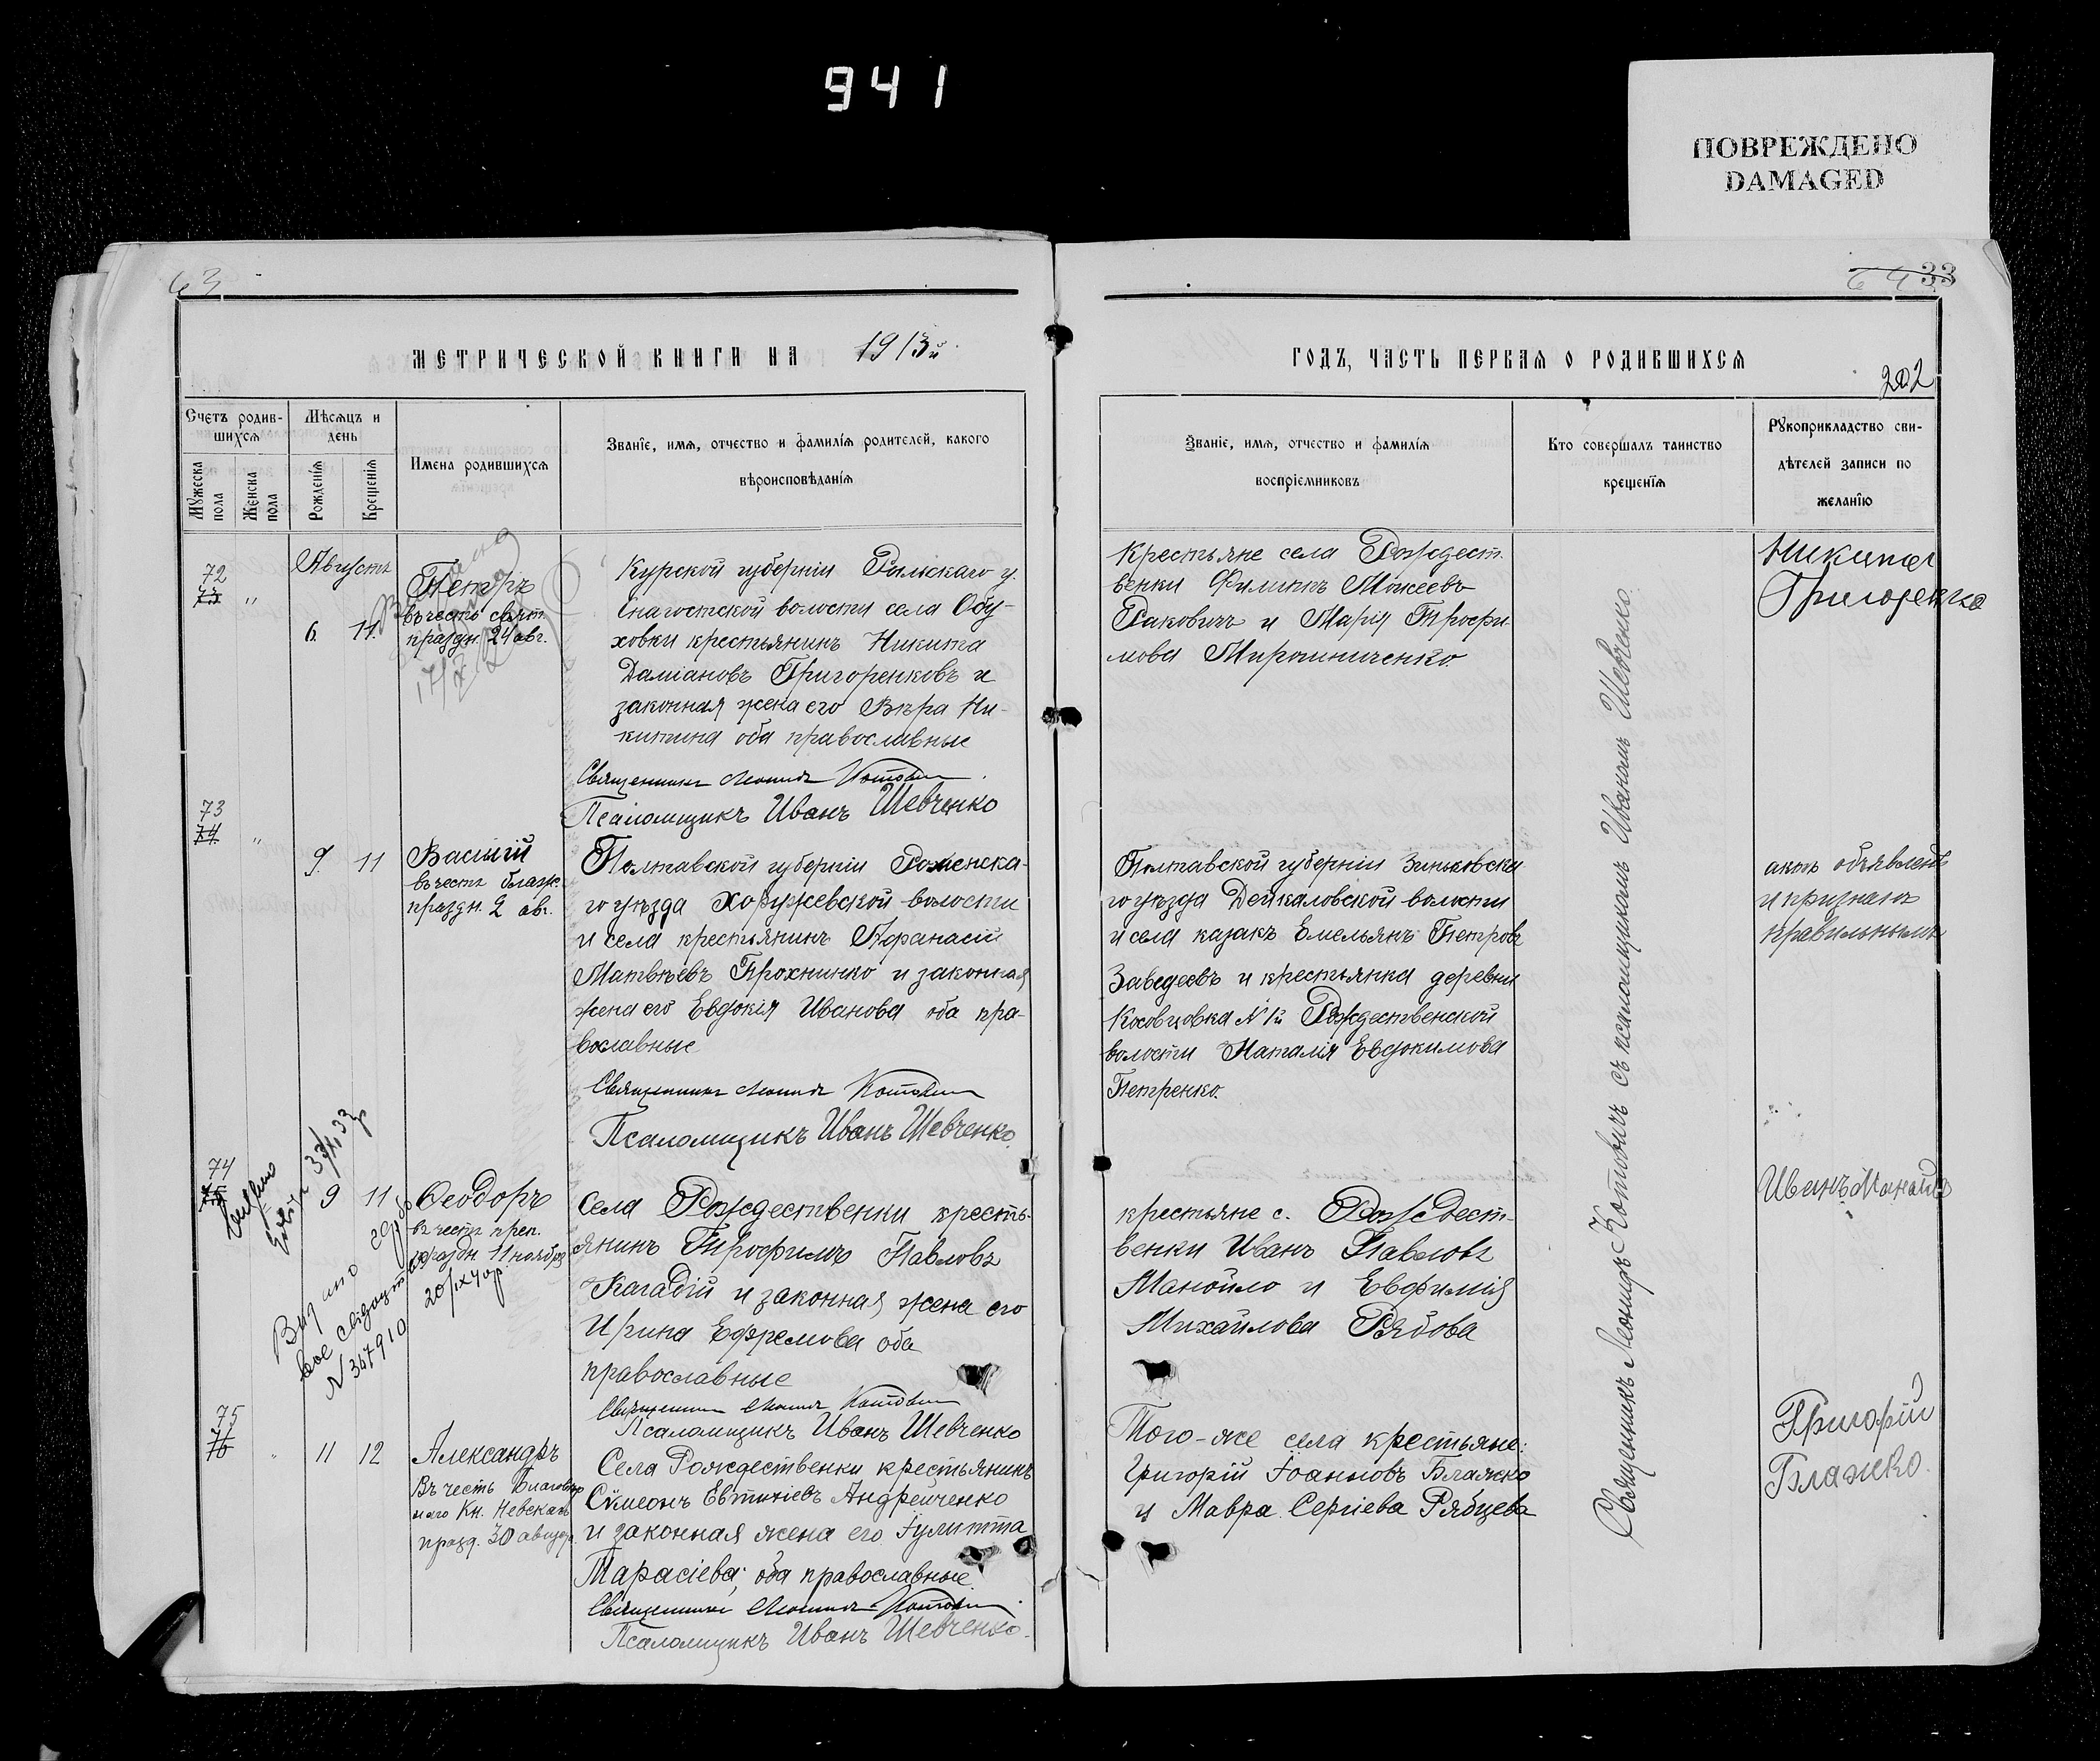 941
ПОВРЕЖДЕНО
DAMAGED
63
МЕТРИЧЕСКОЙ КНИГИ НА 1913й
Счетъ родив-
шихся
Мѣсяцъ и
день
Имена родившихся
Званіе, имя, отчество и фамилія родителей, какого
вѣроисповѣданія
Мужеска
пола
Женска
пола
Рожденія
Крещенія
Августъ
72
73
"
6.
11.
Петръ
въ честь свят.
праздн. 24 авг.
Курской губерніи Рыльскаго у.
Снагостской волости села Обу-
ховки крестьянинъ Никита
Даміановъ Григоренковъ и
законная жена его Вѣра Ни-
китина оба православные
Священникъ Леонидъ Котович
Псаломщикъ Иванъ Шевченко
73
74
"
9.
11
Василій
въ честь блаж.
праздн. 2 авг.
Полтавской губерніи Роменска-
го уѣзда Хоружевской волости
и села крестьянинъ Афанасій
Матвѣевъ Прохнинко и законная
жена его Евдокія Иванова оба пра-
вославные
Священникъ Леонидъ Котович
Псаломщикъ Иванъ Шевченко.
74
75
9
11
Феодоръ
въ честь преп.
праздн. 11 ноября
Выдано
вое свидет
N 347910
20/IX 40г.
Села Рождественки кресть-
янинъ Трофимъ Павловъ
Кагадій и законная жена его
Ирина Ефремова оба
православные
Священникъ Леонидъ Котович
Псаломщикъ Иванъ Шевченко
75
76
11
12
Александръ
Въ честь Благовѣр
наго Кн. Невскаго
празд. 30 августа.
Села Рождественки крестьянинъ
Сѵмеонъ Евтихіевъ Андрейченко
и законная жена его Іулитта
Тарасіева; оба православные.
Священникъ Леонидъ Котович
Псаломщикъ Иванъ Шевченко.
64
33
ГОДЪ, ЧАСТЬ ПЕРВАЯ О РОДИВШИХСЯ
202
Званіе, имя, отчество и фамилія
воспріемниковъ
Кто совершалъ таинство
крещенія
Рукоприкладство сви-
дѣтелей записи по
желанію
Крестьяне села Рождест-
венки Филиппъ Моисеевъ
Ракович и Марія Трофи-
мова Мирошниченко.
Никита
Григоренко
Полтавской губерніи Зиньковска
го уѣзда Дейкаловской волости
и села казакъ Емельянъ Петровъ
Заведеевъ и крестьянка деревни
Косовцовка N 1й Рождественской
волости Наталія Евдокимова
Петренко.
актъ объявленъ
и признанъ
правильнымъ
крестьяне с. Рождест-
венки Иванъ Павловъ
Манойло и Евфимія
Михайлова Рябова
Иванъ Манойло
Того-же села крестьяне:
Григорій Іоанновъ Блажко
и Мавра Сергіева Рябцева
Григорій
Блажко.
Священникъ Леонидъ Котовичъ съ псаломщикомъ Иваномъ Шевченко.